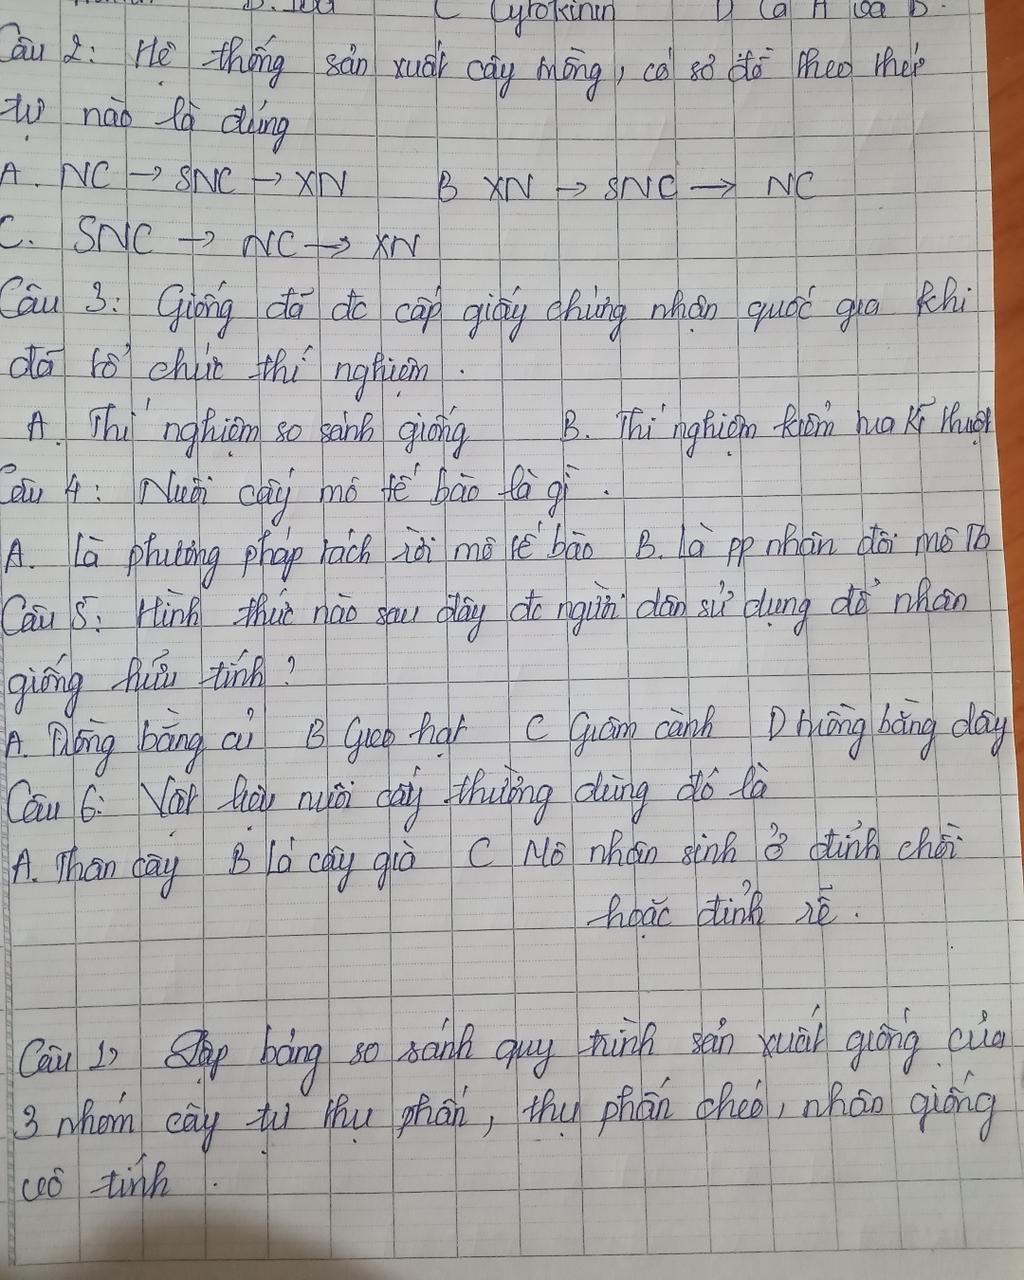 C Cytokinin D Cả A và B.
Câu 2: Hệ thống sản xuất cây trồng, có sơ đồ theo thứ
tự nào là đúng
A. NC → SNC → XN B XN → SNC → NC
C. SNC → NC → XN
Câu 3: Giống đã đc cấp giấy chứng nhận quốc gia khi
đã tổ chức thí nghiệm.
A. Thí nghiệm so sánh giống B. Thí nghiệm kiểm tra kĩ thuật
Câu 4: Nuôi cấy mô tế bào là gì.
A. Là phương pháp tách rời mô tế bào B. là pp nhân đôi mô Tb
Câu 5: Hình thức nào sau đây đc người dân sử dụng để nhân
giống hữu tính?
A. Trồng bằng củ B Gieo hạt C Giâm cành D trồng bằng dây
Câu 6: Vật liệu nuôi cấy thường dùng đó là
A. Thân cây B lá cây già C Mô phân sinh ở đỉnh chồi
hoặc đỉnh rễ.
Câu 1) Lập bảng so sánh quy trình sản xuất giống của
3 nhóm cây tự thụ phấn, thụ phấn chéo, nhân giống
vô tính.